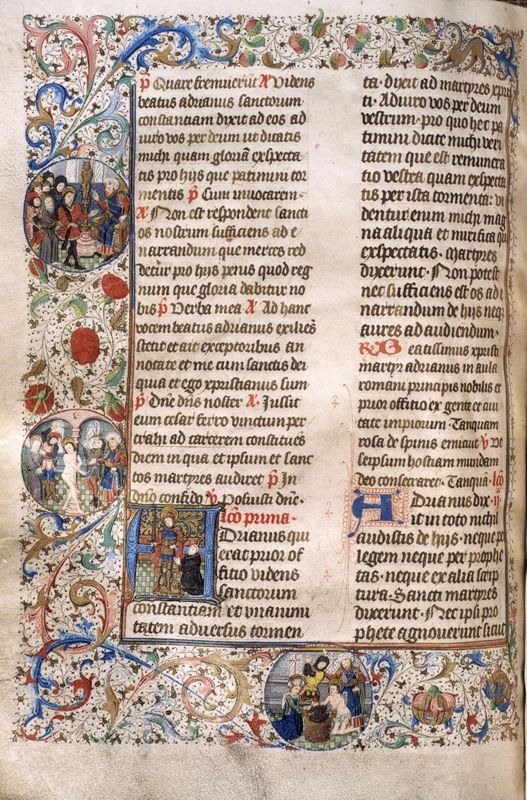 p Quare fremuerūt A Videns
beatus adrianus sanctorum
constantiam dixit ad eos ad
iuro vos per deum ut dicatis
michi quam gloriā expecta
tis pro hijs que patimini tor
mentis p Cum inuocarem·
A Non est respondene sancti
os nostrum sufficiens ad e
narrandum que merces red
detur pro hijs penis quod reg
num que gloria dabitur no
bis p Verba mea A Ad hanc
vocem beatus adrianus exilies
stetit et ait exceptoribus an
notate et me cum sanctis dei
qua et ego xpristianus sum
p dn̄e dn̄s noster A· Jussit
eum cesar ferro vinctum per
trahi ad carcerem constitues
diem in qua et ipsum et sanc
tos martyres audiret p In
dn̄o confido v Posuisti dn̄e·
lc̄o prima·
Adrianus qui
erat prior of
fitio videns
sanctorum
constantiam et vnanimi
tatem aduersus tormen
ta· dixit ad martyres xpris
ti· Adiuro vos per deum
vestrum· pro quo hec pa
timini dicite michi veri
tatem que est remunera
tio vestra quam expecta
tis per ista tormenta· vi
dentur enim michi mag
na aliqua et mirifica que
exspectatis· Martyres
dixerunt· Non potest
nec sufficiens est os ad e
narrandum de hijs neq̄
aures ad audiendum·
Beatissimus xpristi
martyr adrianus in aula
romani principis nobilis et
prior offitio ex gente et ciui
tate impiorum Tanquam
rosa de spinis emicuit v Ut
seipsum hostiam mundam
deo consecraret· Tanquā· lc̄o
Adrianus dix· ij·
it in toto nichil
audistis de hijs· neque p
legem neque per prophe
tas· neque ex alia scrip
tura· Sancti martyres
dixerunt· Nec ipsi pro
phete agnouerunt sicut